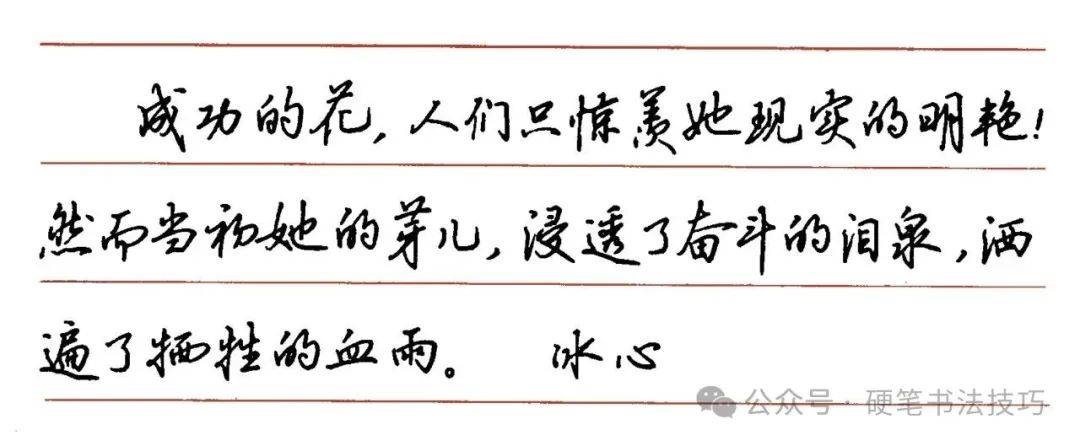 成功的花，人们只惊羡她现实的明艳！
然而当初她的芽儿，浸透了奋斗的泪泉，洒
遍了牺牲的血雨。 冰心
公众号·硬笔书法技巧